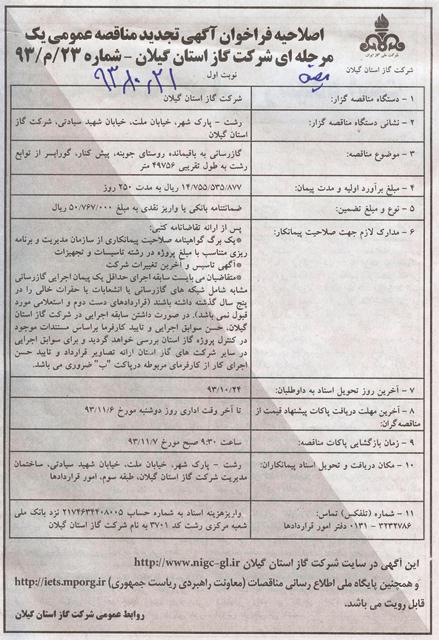 اصلاحیه فراخوان آگهی تجدید مناقصه عمومی یک
مرحله ای شرکت گاز استان گیلان - شماره ۹۳/م/۲۳
شرکت ملی گاز ایران
شرکت گاز استان گیلان
نوبت اول
۹۳،۱۰،۲۱
۱ - دستگاه مناقصه گزار:
شرکت گاز استان گیلان
۲ - نشانی دستگاه مناقصه گزار:
رشت - پارک شهر، خیابان ملت، خیابان شهید سیادتی، شرکت گاز
استان گیلان
۳ - موضوع مناقصه:
گازرسانی به باقیمانده روستای جوبنه، پیش کنار، گورابسر از توابع
رشت به طول تقریبی ۴۹۷۵۶ متر
۴ - مبلغ برآورد اولیه و مدت پیمان:
۱۴/۷۵۵/۵۳۵/۸۷۷ ریال به مدت ۲۵۰ روز
۵ - نوع و مبلغ تضمین:
ضمانتنامه بانکی یا واریز نقدی به مبلغ ۵۰/۷۶۷/۰۰۰ ریال
۶ - مدارک لازم جهت صلاحیت پیمانکار:
پس از ارائه تقاضانامه کتبی:
*یک برگ گواهینامه صلاحیت پیمانکاری از سازمان مدیریت و برنامه
ریزی متناسب با مبلغ پروژه در رشته تاسیسات و تجهیزات
*آگهی تاسیس و آخرین تغییرات شرکت
*متقاضیان می بایست سابقه اجرای حداقل یک پیمان اجرایی گازرسانی
مشابه شامل شبکه های گازرسانی یا انشعابات یا حفرات خالی را در
پنج سال گذشته داشته باشند (قراردادهای دست دوم و استعلامی مورد
قبول نمی باشد). در صورت داشتن سابقه اجرایی در شرکت گاز استان
گیلان، حسن سوابق اجرایی و تایید کارفرما براساس مستندات موجود
در کنترل پروژه گاز استان بررسی خواهد گردید و برای سوابق اجرایی
در سایر شرکت های گاز استان ارائه تصاویر قرارداد و تایید حسن
اجرای کار از کارفرمای مربوطه درپاکت "ب" ضروری می باشد.
۷ - آخرین روز تحویل اسناد به داوطلبان:
۹۳/۱۰/۲۴
۸ - آخرین مهلت دریافت پاکات پیشنهاد قیمت از
مناقصه گران:
تا آخر وقت اداری روز دوشنبه مورخ ۹۳/۱۱/۶
۹ - زمان بازگشایی پاکات مناقصه:
ساعت ۹:۳۰ صبح مورخ ۹۳/۱۱/۷
۱۰ - مکان دریافت و تحویل اسناد پیمانکاران:
رشت - پارک شهر، خیابان ملت، خیابان شهید سیادتی، ساختمان
مدیریت شرکت گاز استان گیلان، طبقه سوم، امور قراردادها
۱۱ - شماره (تلفکس) تماس:
۳۲۳۲۷۸۶ - ۰۱۳۱ دفتر امور قراردادها
واریزهزینه اسناد به شماره حساب ۲۱۷۴۶۳۴۴۰۸۰۰۵ نزد بانک ملی
شعبه مرکزی رشت کد ۳۷۰۱ به نام شرکت گاز استان گیلان
این آگهی در سایت شرکت گاز استان گیلان http://www.nigc-gl.ir
و همچنین پایگاه ملی اطلاع رسانی مناقصات (معاونت راهبردی ریاست جمهوری) http://iets.mporg.ir
قابل رویت می باشد.
روابط عمومی شرکت گاز استان گیلان